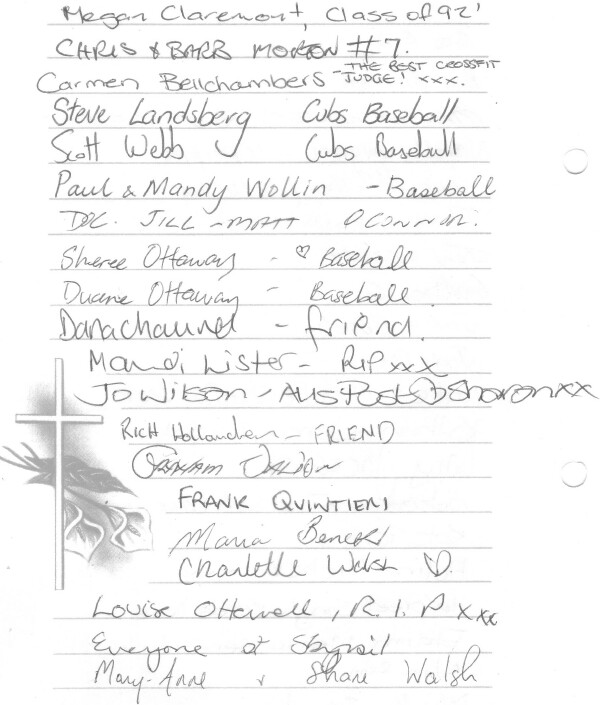 Megan Claremont, Class of 92'
CHRIS & BARB MORTON #7.
Carmen Bellchambers - THE BEST CROSSFIT JUDGE! xxx.
Steve Landsberg Cubs Baseball
Scott Webb Cubs Baseball
Paul & Mandy Wollin - Baseball
JILL - MATT O'CONNOR.
Sheree Ottaway - ♡ Baseball
Duane Ottaway - Baseball.
Dana - friend.
Mandi Lister - RIP xxx
Jo Wilson - Aus Post Sharon xx
RICH - FRIEND
GRAHAM
FRANK QUINTIERI
Maria
Charlotte Walsh ♡
Louise Ottewell, R.I.P xxx
Everyone at Skyrail
Mary-Anne & Shane Walsh